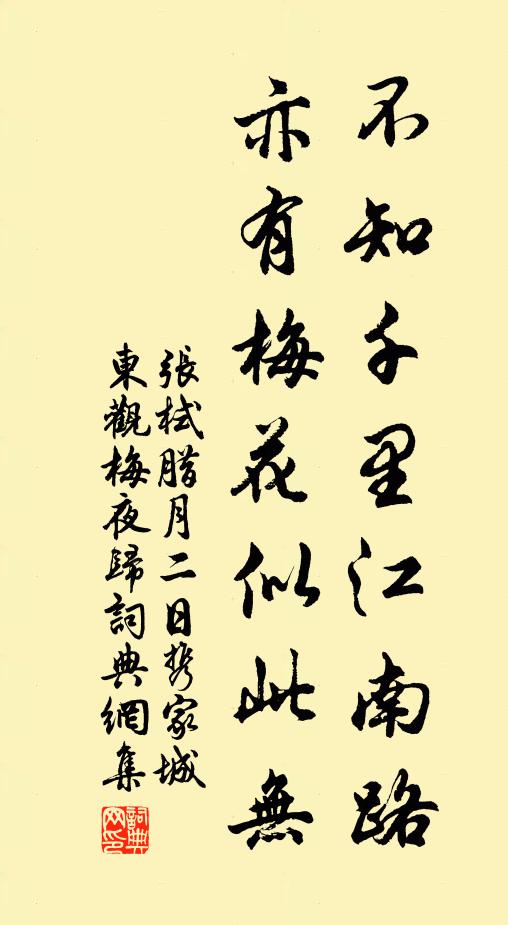 不知千里江南路
亦有梅花似此無
張栻腊月二日携家城
東觀梅夜歸詞典網集
詞典
网印